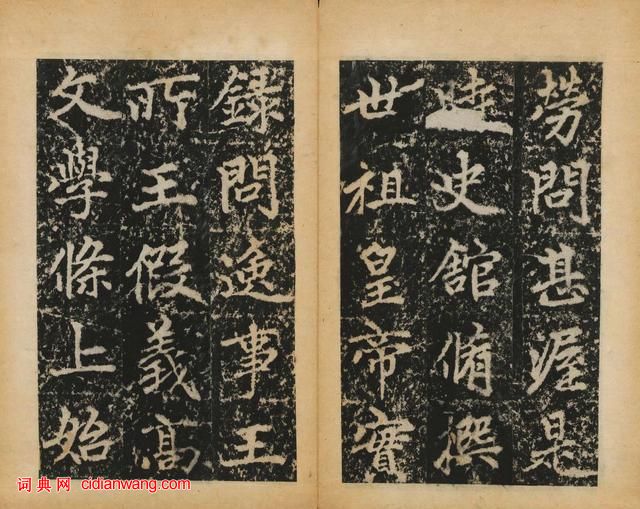 勞問甚渥是
時史館脩撰
世祖皇帝實
錄問逸事王
所王假義高
文學條上始
词典网 cidianwang.com